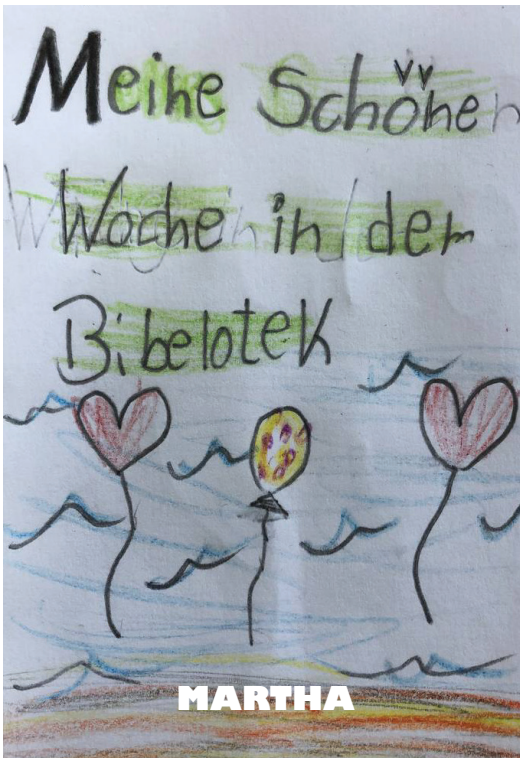 Meine Schöne
Woche in der
Bibelotek
MARTHA